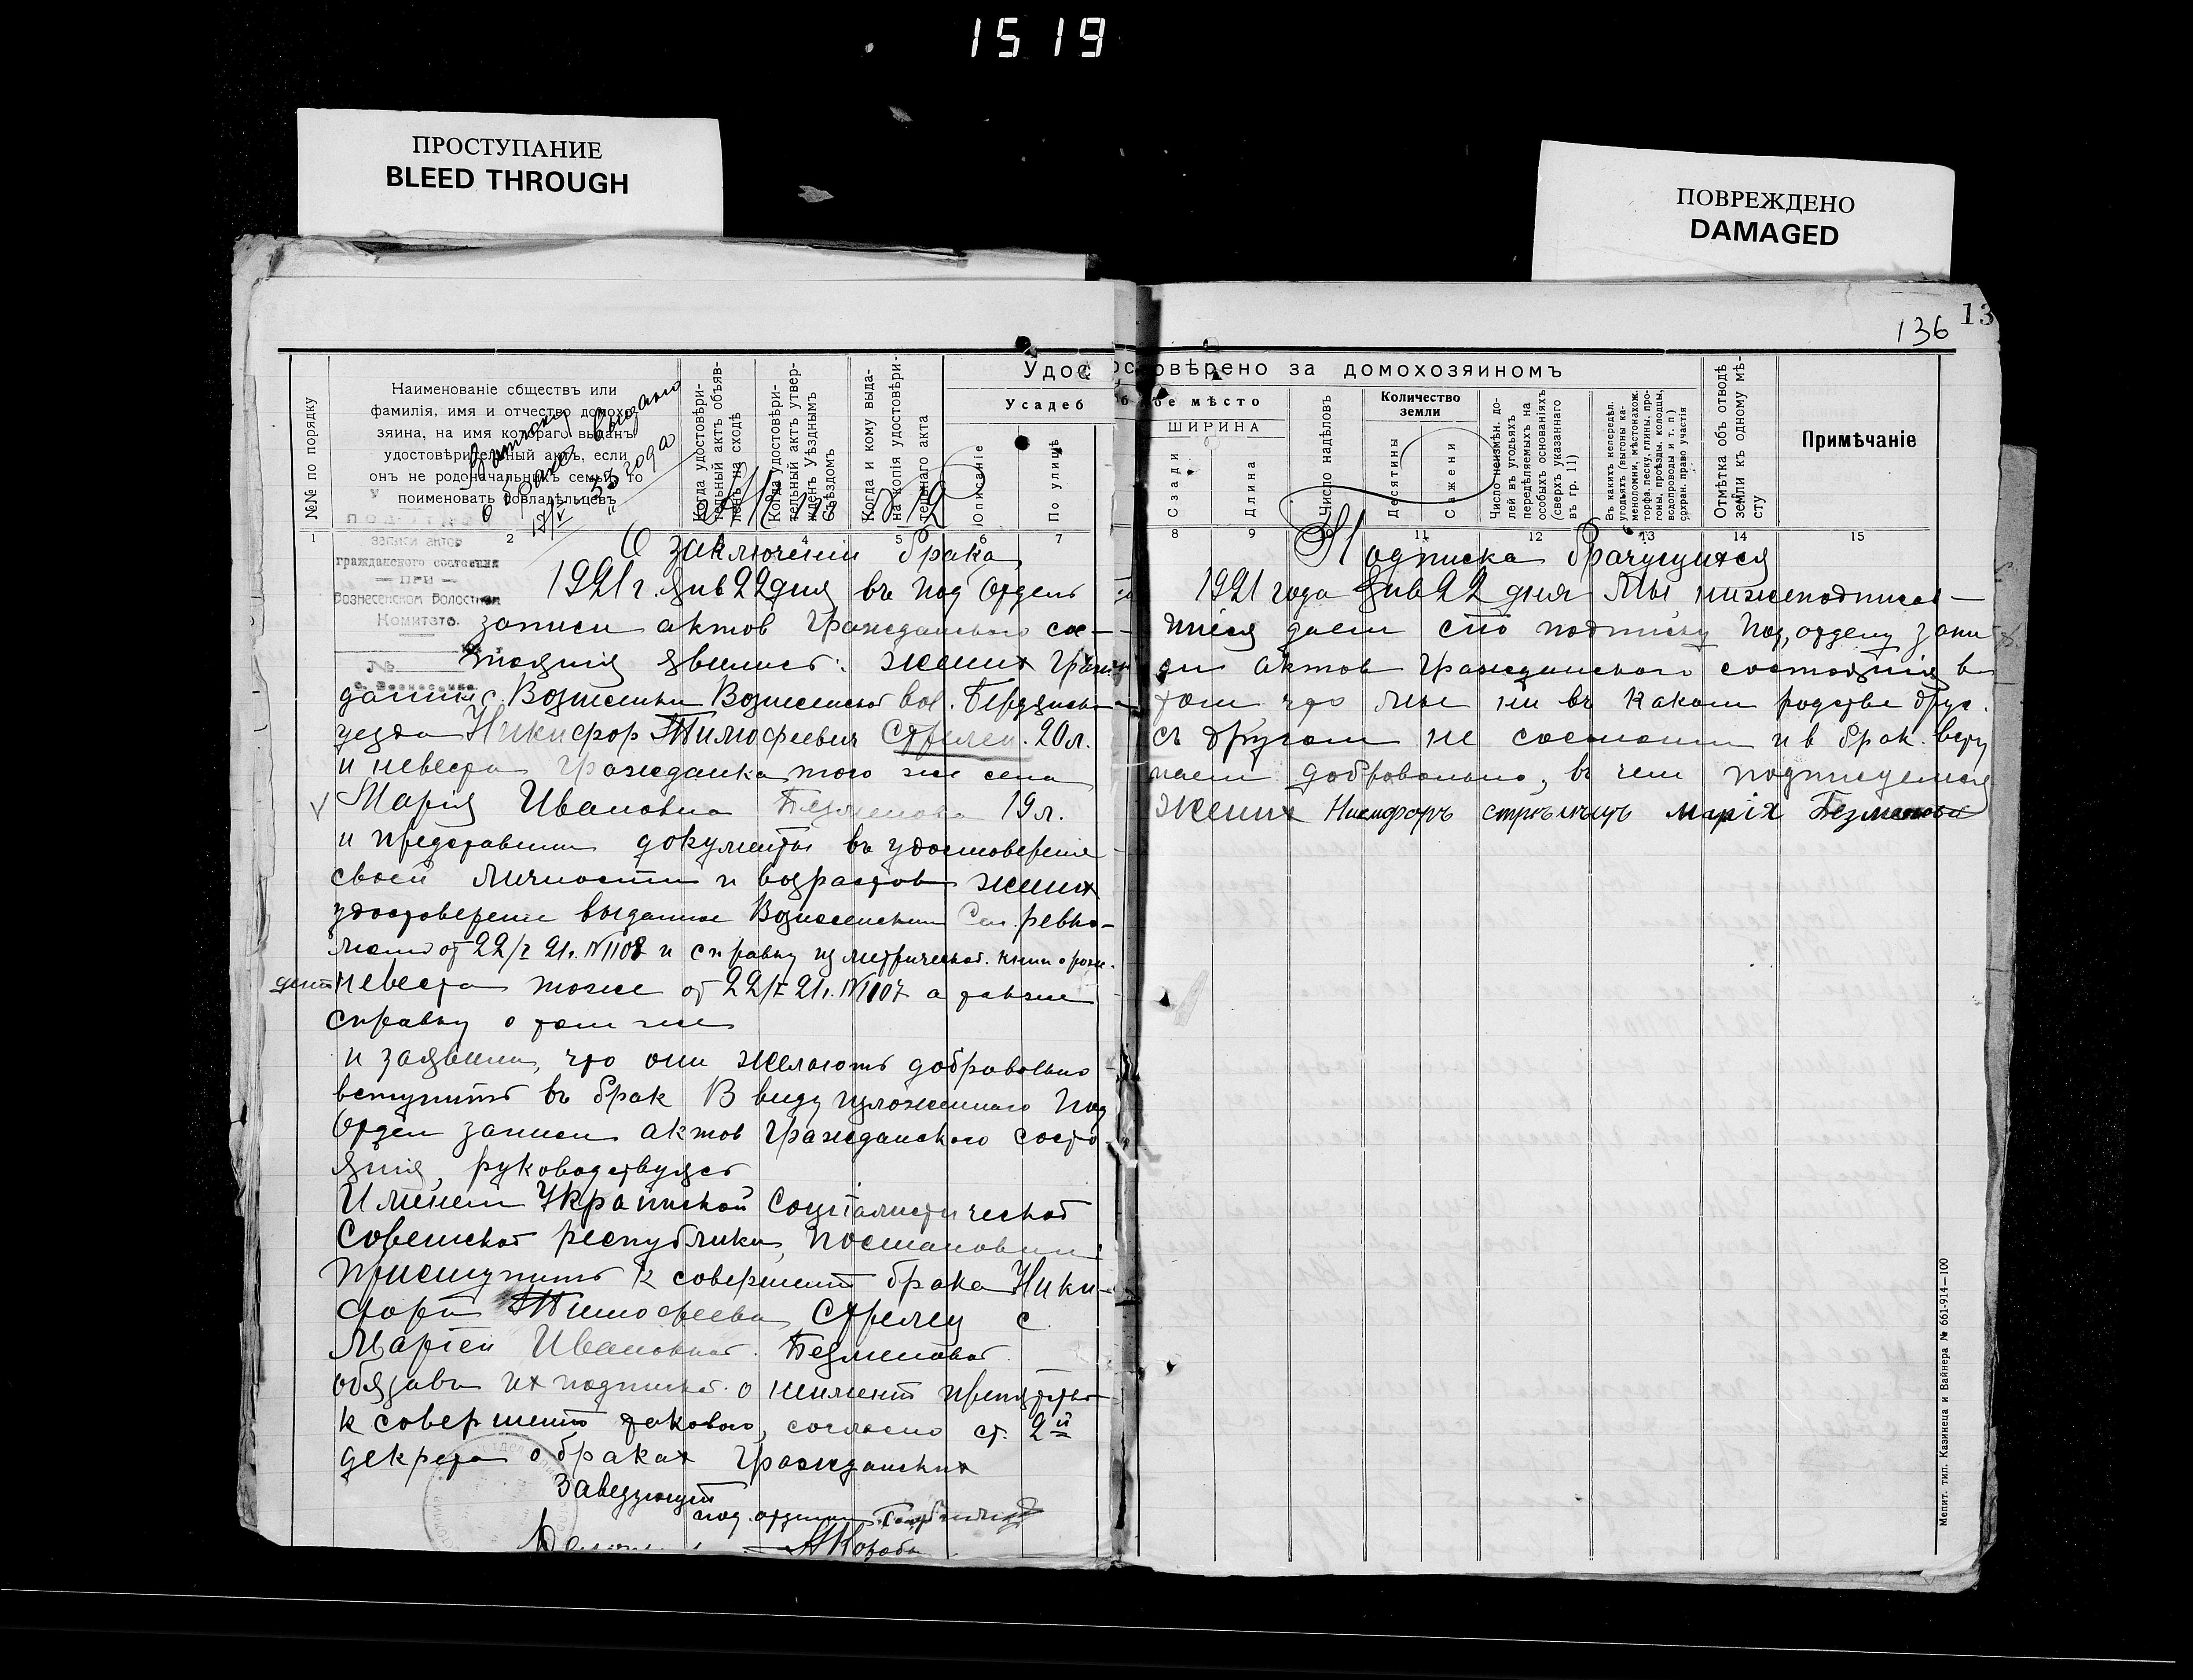 1519
ПРОСТУПАНИЕ
BLEED THROUGH
ПОВРЕЖДЕНО
DAMAGED
13
136
№№ по порядку
Наименованіе сбществъ или
фамилія, имя и отчество домохо-
зяина, на имя котораго выданъ
удостовѣрительный актъ, если
онъ не родоначальникъ семьи, то
поименовать совладѣльцевъ
Выписка
о браке выдано
18/V 33 года
Когда удостовѣри-
тельный актъ объяв-
ленъ на сходѣ
Когда удостовѣри-
тельный актъ утвер-
жденъ Уѣзднымъ
Съѣздомъ
Когда и кому выда-
на копія удостовѣри-
тельнаго акта
Удостовѣрено за домохозяиномъ
Усадебное мѣсто
Описаніе
По улицѣ
ШИРИНА
Сзади
Длина
Число надѣловъ
Количество
земли
Десятины
Сажени
Число неизмѣн. до-
лей въ угодьяхъ
передѣляемыхъ на
особыхъ основаніяхъ
(сверхъ указаннаго
въ гр. 11)
Въ какихъ непередѣл.
угодьяхъ (выгоны ка-
меноломни, мѣстонахож.
торфа, песку, глины, про-
гоны, проѣзды, колодцы,
водопроводы и т. п.)
сохран. право участія
Отмѣтка объ отводѣ
земли къ одному мѣ-
сту
Примѣчаніе
1 2 4 5 6 7 8 9 11 12 13 14 15
записи актов
гражданского состояния
— ПРИ —
Вознесенском Волостном
Комитете.
№
с. Вознесенка
О заключении брака
1921 г. Янв 22 дня въ под Отделъ
записи актов Гражданского сос-
тоянія явились: жених Граж
данин с. Вознесенки Вознесенской вол. Бердянск
уезда Никифор Тимофеевич Стрелец. 20 л.
и невеста Гражданка того же села
√ Марія Ивановна Безменова 19 л.
и представили документы въ удостоверение
своей личности и возрастов жених
удостоверение выданное Вознесенским Сел. ревко-
мом от 22/I 21г. № 1108 и справку из метрической. книги о рож-
дении невеста тоже от 22/I 21г. № 1107 а также
справку о том же
и заявили, что они желають добровольно
вступить въ брак В виду изложенного Под
Отдел записи актов Гражданского состо-
янія, руководствуясь
Именем Украинской Соціалистической
Советской республики, постановил:
приступить к совершенію брака Ники-
фора Тимофеева Стрелец с
Маріей Ивановной Безменовой
обязавъ их подпиской о неимении препятствій
к совершенію такового, согласно ст. 2й
декрета о браках Гражданских
Заведующий
под. отделом
Подписка Брачущихся
1921 года Янв 22 дня Мы, нижеподписав-
шіеся даем сію подписку Под, отделу запи
си актов Гражданского состоянія в
том что мы ни въ каком родстве друг
съ другом не состоим и в брак всту
паем добровольно, въ чем подписуемся
жених Никифоръ стрѣлѣцъ марія Безменова
Мелит. тип. Казинеца и Вайнера № 661-914—100